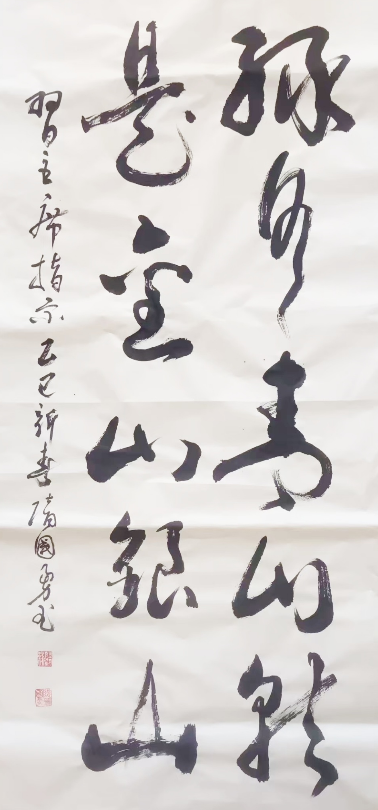 绿水青山就
是金山银山
習主席指示乙巳新春隋國勇书